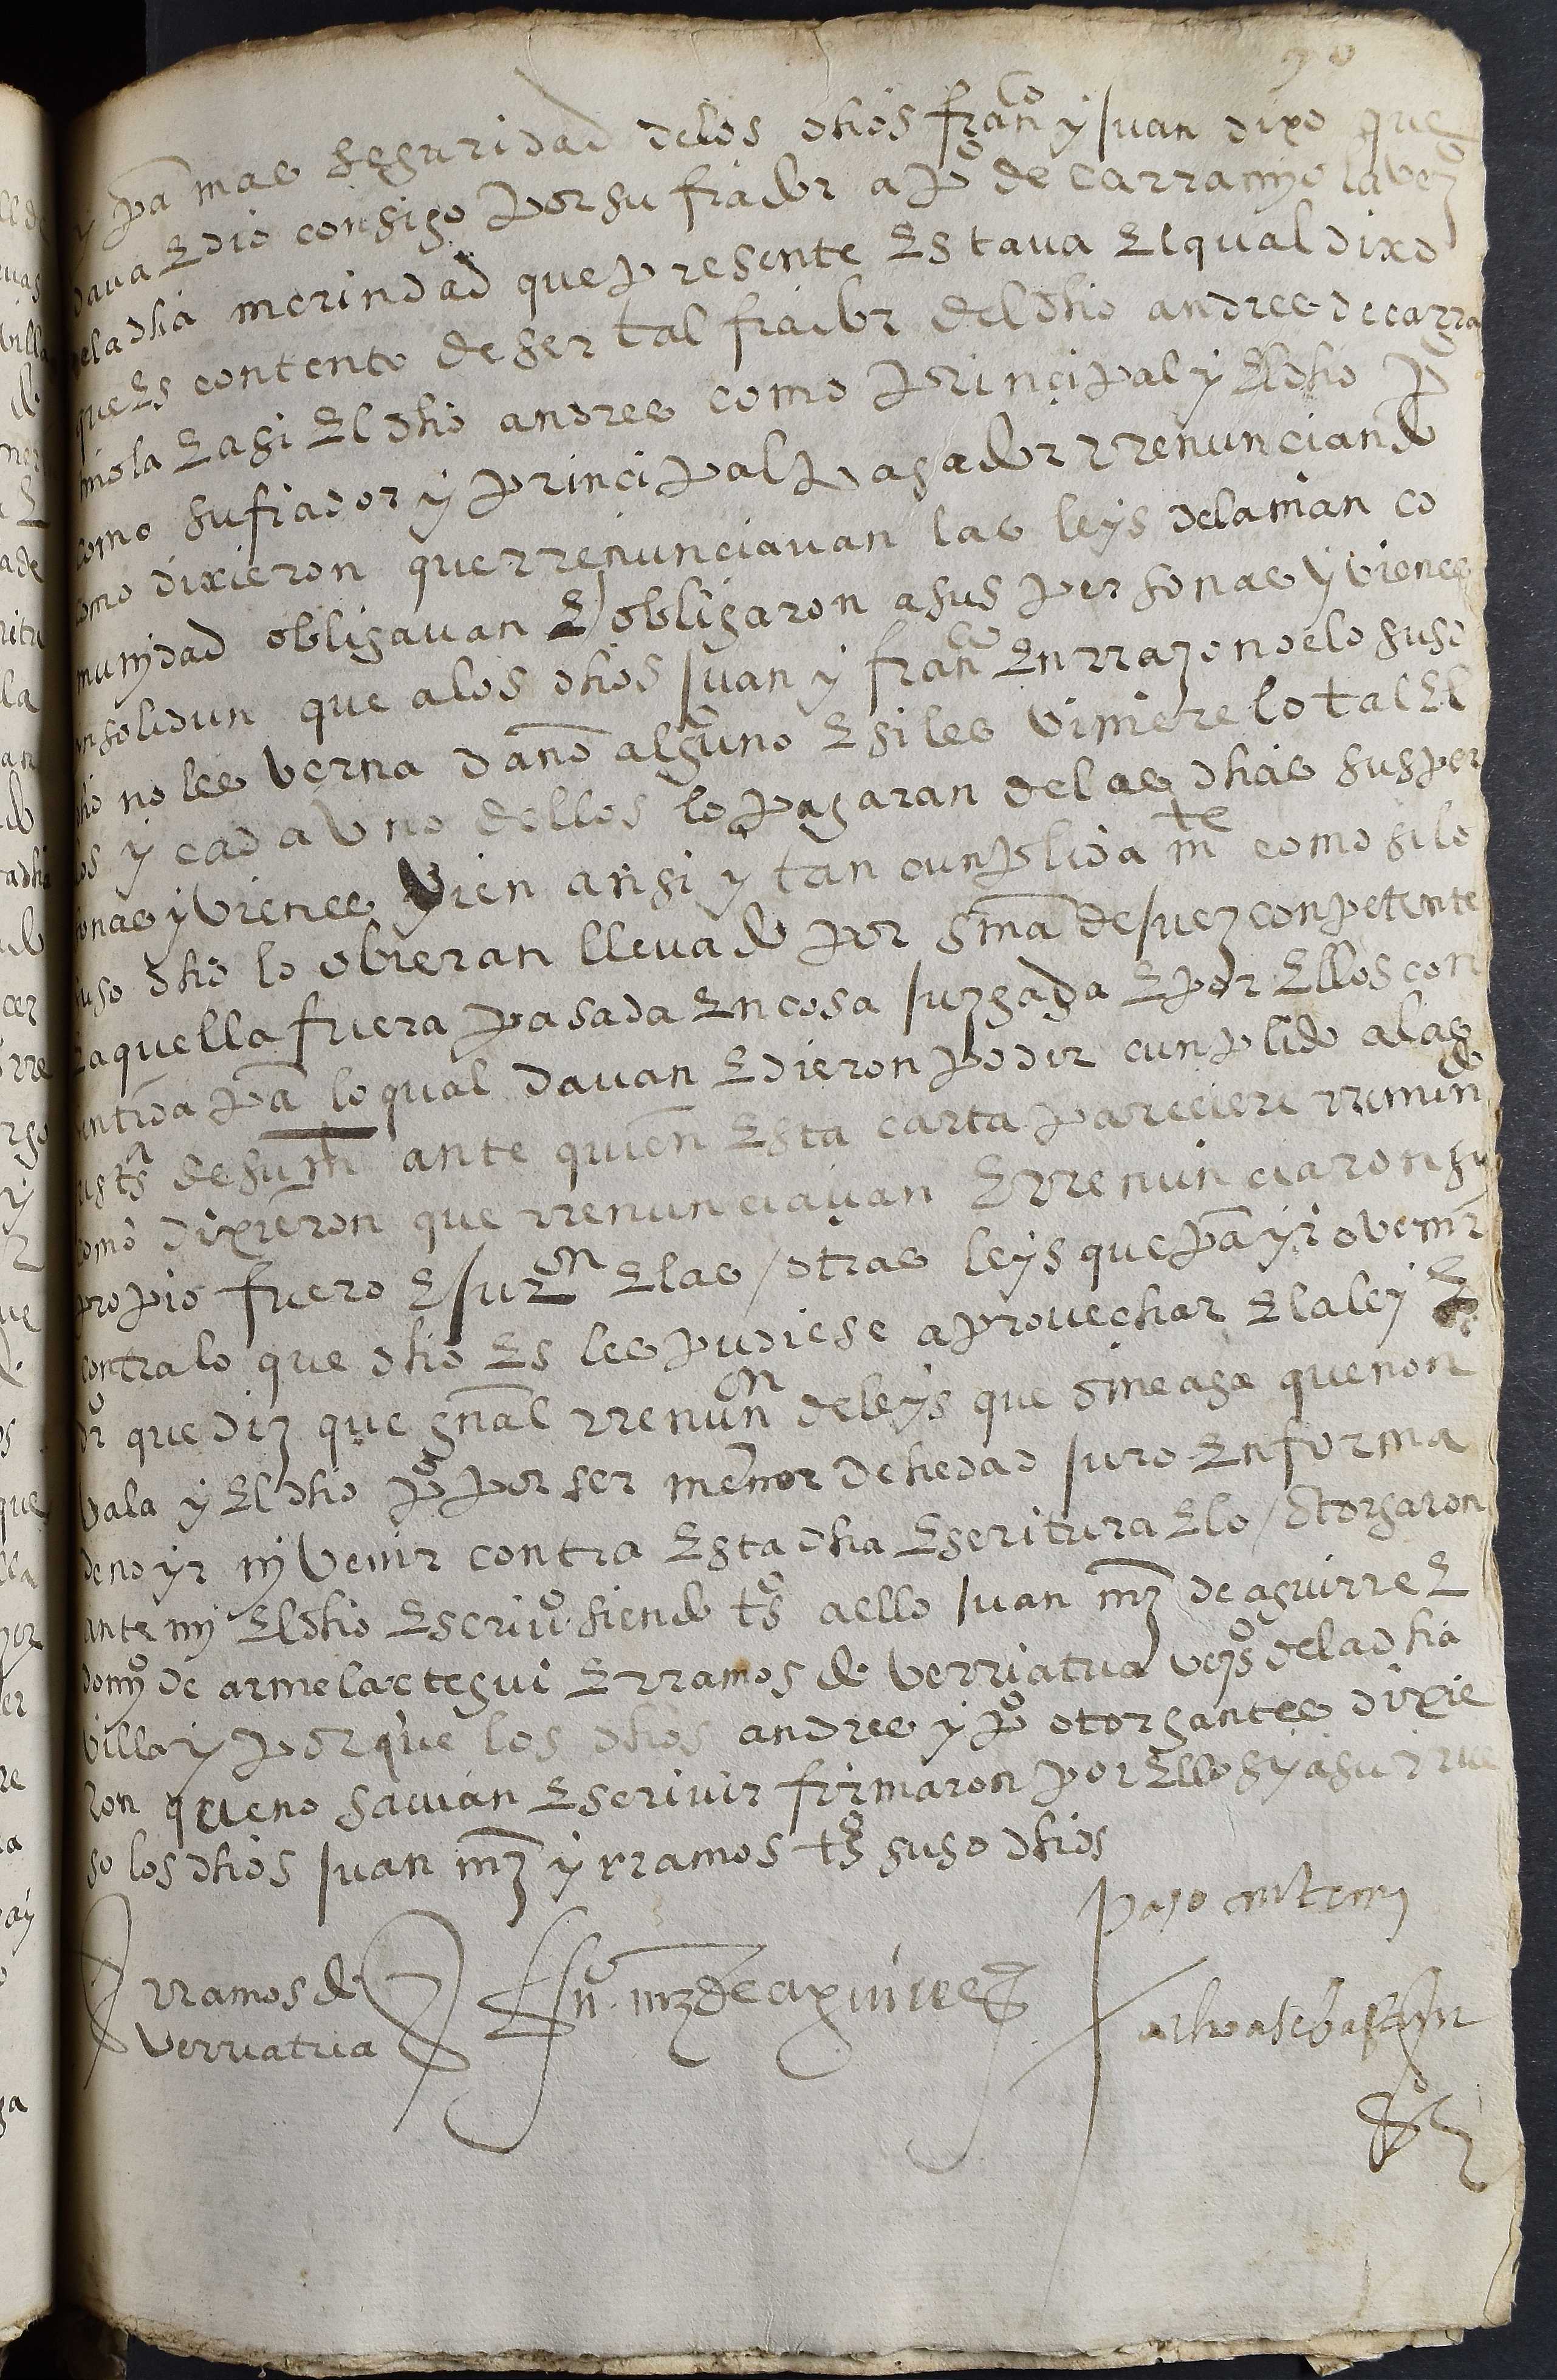 y pa mas seguridad delos dhos franco y Juan dixo que
dava E dio consigo por su fiador a po de carramyola vezo
dela dha merindad que presente Estava El qual dixo
que Es contento de ser tal fiador del dho andres de carra
miola E asi El dho andres como principal y El dho po
como su fiador y principal pagador rrenunciando
como dixieron que rrenunciavan las leys dela man co
munydad obligavan E obligaron a sus personas y vienes
ynsolidun que alos dhos Juan y franco En rrazon delo suso
dho no les verna dano alguno E si les viniere lo tal El
los y cada uno dellos lo pagaran delas dhas sus per
sonas y vienes vien ansi y tan cunplida mte como si lo
suso dho lo obieran llevado por sma de Juez conpetente
E aquella fuera pasada En cosa Juzgada E por Ellos con
sentida pa lo qual davan E dieron poder cunplido alas
justs de su mt ante quien Esta carta pareciere rrenundo
como dixieron que rrenunciavan E rrenunciaron su
propio fuero E Juron E las otras leys que pa yr o venir
contra lo que dho Es les pudiese aprovechar E la ley E
dro que diz que gnal rrenunon de leys que ome aga que non
vala y El dho po por ser menor de hedad Juro En forma
de no yr ny venir contra Esta dha Escritura E lo otorgaron
ante my El dho Escrivo siendo tso a ello Juan mz de aguirre E
domyo de armelaetegui E rramos de verriatua vezos dela dha
villa y porque los dhos andres y po otorgantes dixie
ron que no savian Escrivir firmaron por Ellos y a su rrue
go los dhos Juan mz y rramos tso suso dhos
paso ante my
rramos de
verriatua
Juo mz de aguirre